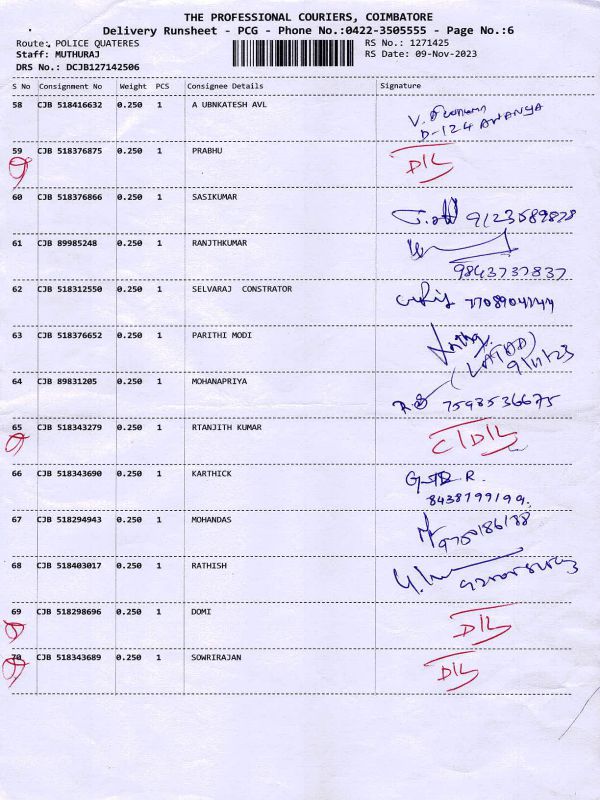 THE PROFESSIONAL COURIERS, COIMBATORE
Delivery Runsheet - PCG - Phone No.:0422-3505555 - Page No.:6
Route: POLICE QUATERES RS No.: 1271425
Staff: MUTHURAJ RS Date: 09-Nov-2023
DRS No.: DCJB127142506
S No Consignment No Weight PCS Consignee Details Signature
58 CJB 518416632 0.250 1 A UBNKATESH AVL
D-124 ANANYA
59 CJB 518376875 0.250 1 PRABHU D/L
60 CJB 518376866 0.250 1 SASIKUMAR 9123589878
61 CJB 89985248 0.250 1 RANJTHKUMAR
9843737837
62 CJB 518312550 0.250 1 SELVARAJ CONSTRATOR
63 CJB 518376652 0.250 1 PARITHI MODI
(LATHA)
9/11/23
64 CJB 89831205 0.250 1 MOHANAPRIYA
7598536675
65 CJB 518343279 0.250 1 RTANJITH KUMAR C/D/L
66 CJB 518343690 0.250 1 KARTHICK
8438199199.
67 CJB 518294943 0.250 1 MOHANDAS
9750186188
68 CJB 518403017 0.250 1 RATHISH
69 CJB 518298696 0.250 1 DOMI D/L
70 CJB 518343689 0.250 1 SOWRIRAJAN D/L